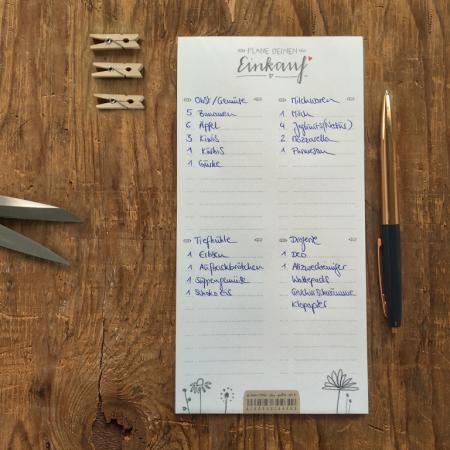 PLANE DEINEN
Einkauf
Obst/Gemüse
5 Bananen
6 Äpfel
3 Kiwis
1 Kürbis
1 Gurke
Milchwaren
1 Milch
4 Joghurts (Natur)
2 Mozzarella
1 Parmesan
Tiefkühle
1 Erbsen
1 Aufbackbrötchen
1 Suppengemüse
1 Schokoeis
Drogerie
1 DEO
1 Allzweckreiniger
Wattepads
Geschirrschwämme
Klopapier